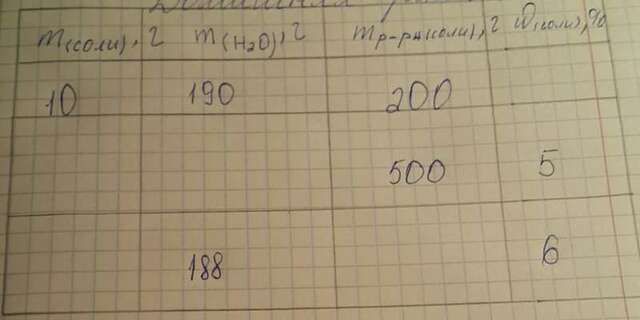 Домашняя
m(соли), г m(H₂O), г mр-ра(соли), г ω(соли), %
10 190 200
500 5
188 6